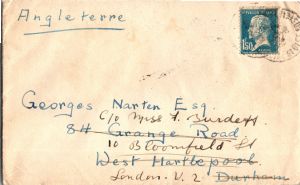 Angleterre
1F50
Georges Narten Esq.
c/o Miss F. Burdett
84 Grange Road
10 Bloomfield St
West Hartlepool
London. V. 2 Durham